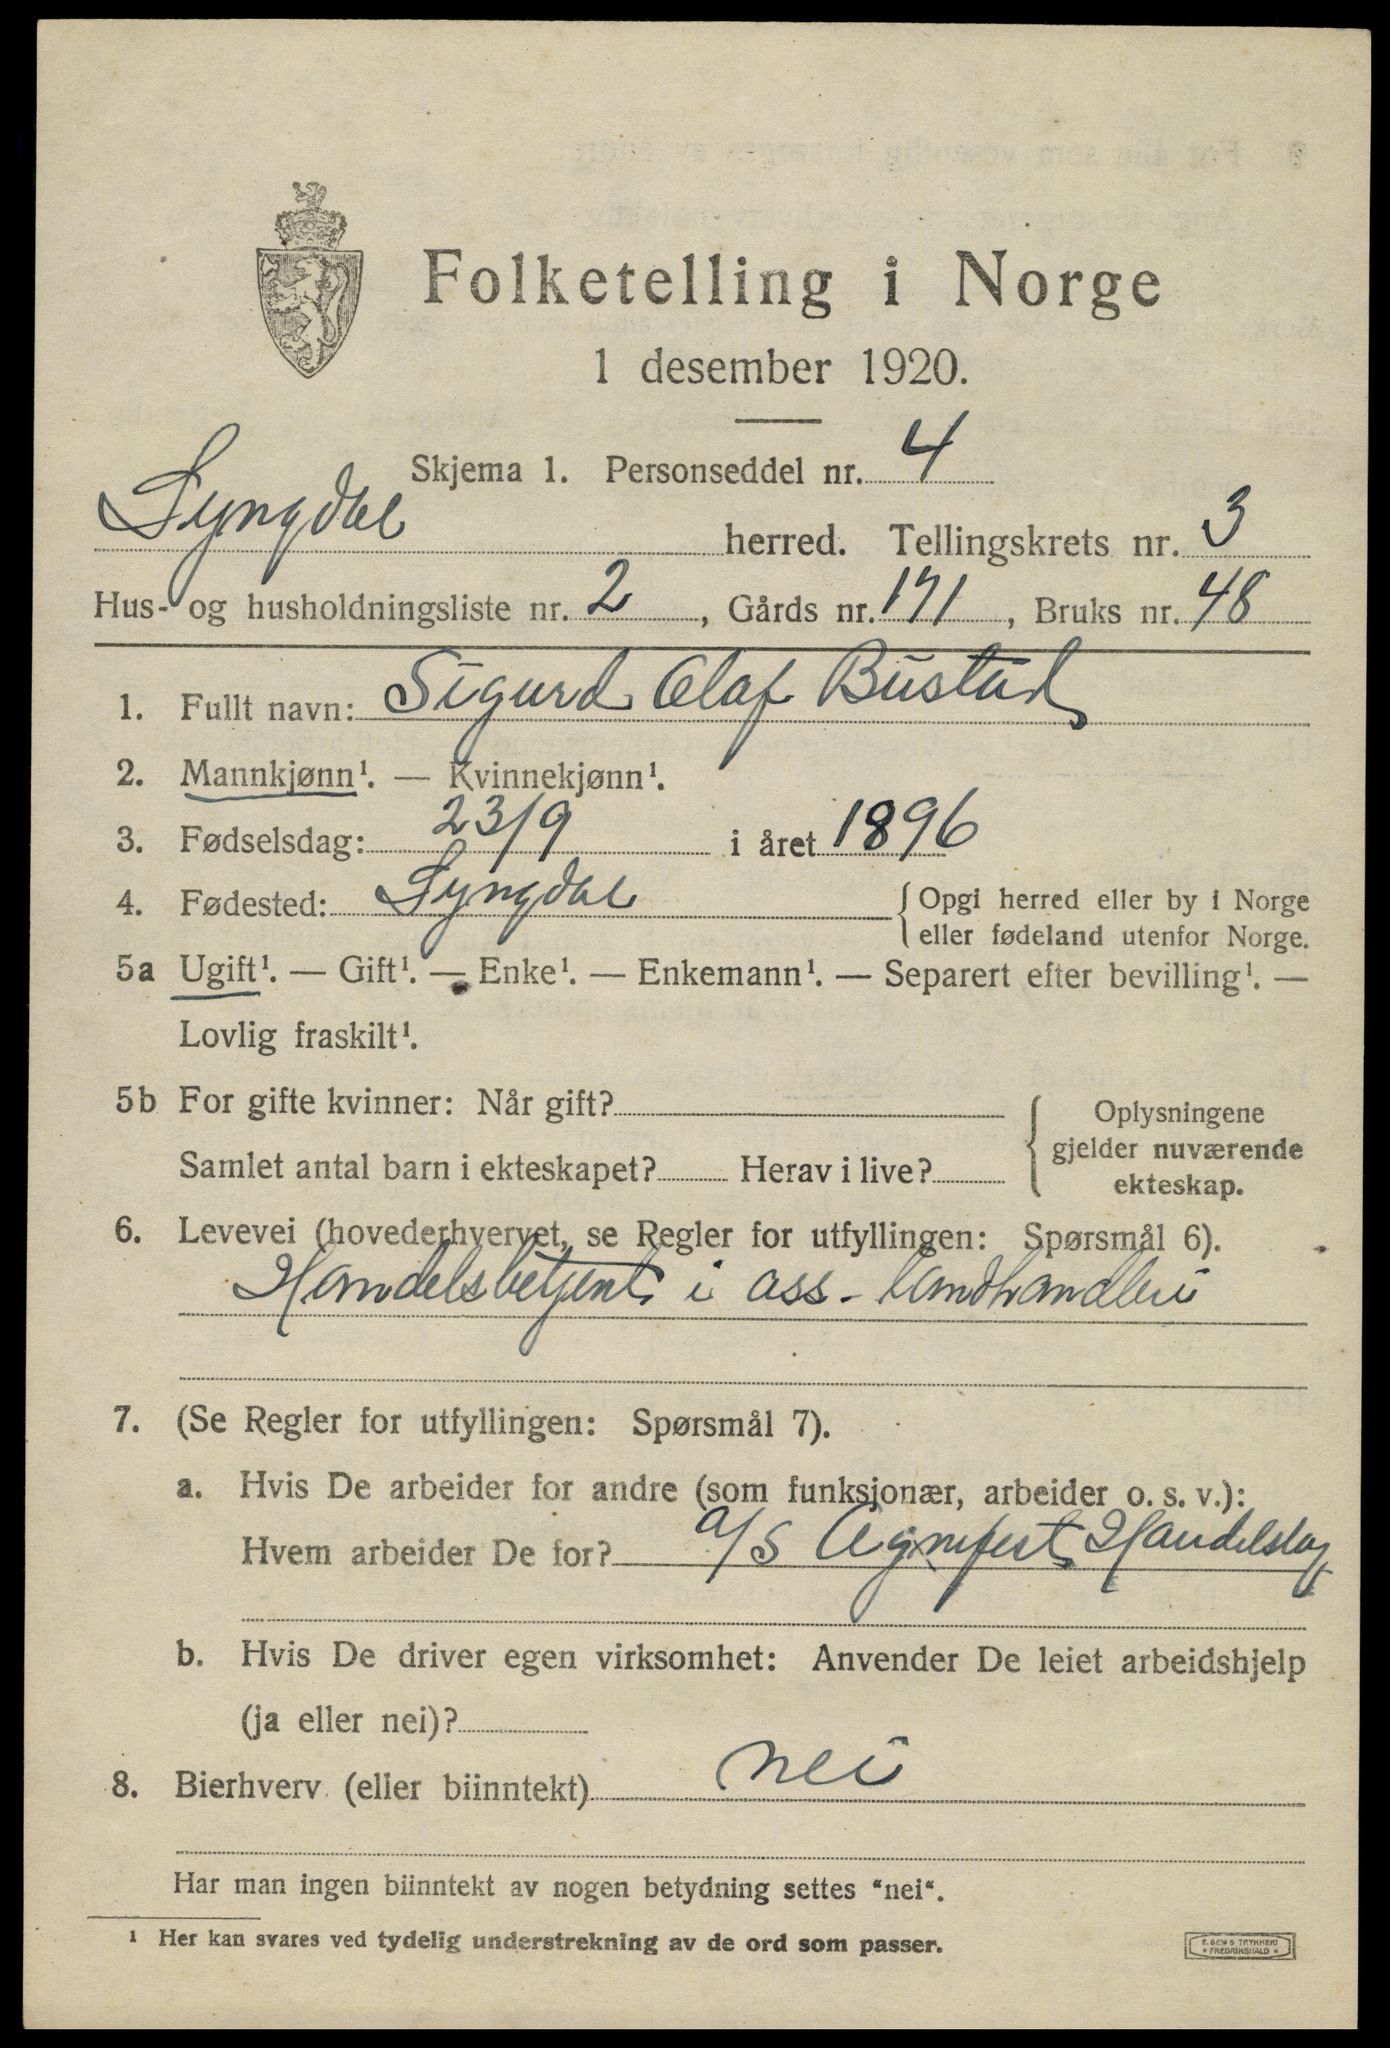 Folketelling i Norge
1 desember 1920.
Skjema 1. Personseddel nr. 4
Lyngdal herred. Tellingskrets nr. 3
Hus- og husholdningsliste nr. 2, Gårds nr. 171, Bruks nr. 48
1. Fullt navn: Sigurd Olaf Bustad
2. Mannkjønn¹. — Kvinnekjønn¹.
3. Fødselsdag: 23/9 i året 1896
4. Fødested: Lyngdal { Opgi herred eller by i Norge
eller fødeland utenfor Norge.
5a Ugift¹. — Gift¹. — Enke¹. — Enkemann¹. — Separert efter bevilling¹. —
Lovlig fraskilt¹.
5b For gifte kvinner: Når gift?
Samlet antal barn i ekteskapet? Herav i live?
{ Oplysningene
gjelder nuværende
ekteskap.
6. Levevei (hovederhvervet, se Regler for utfyllingen: Spørsmål 6).
Handelsbetjent i ass. landhandleri
7. (Se Regler for utfyllingen: Spørsmål 7).
a. Hvis De arbeider for andre (som funksjonær, arbeider o. s. v.):
Hvem arbeider De for? a/s Agnefest Handelslag
b. Hvis De driver egen virksomhet: Anvender De leiet arbeidshjelp
(ja eller nei)?
8. Bierhverv (eller biinntekt) nei
Har man ingen biinntekt av nogen betydning settes “nei“.
¹ Her kan svares ved tydelig understrekning av de ord som passer.
E. SEMS TRYKKERI
FREDRIKSHALD